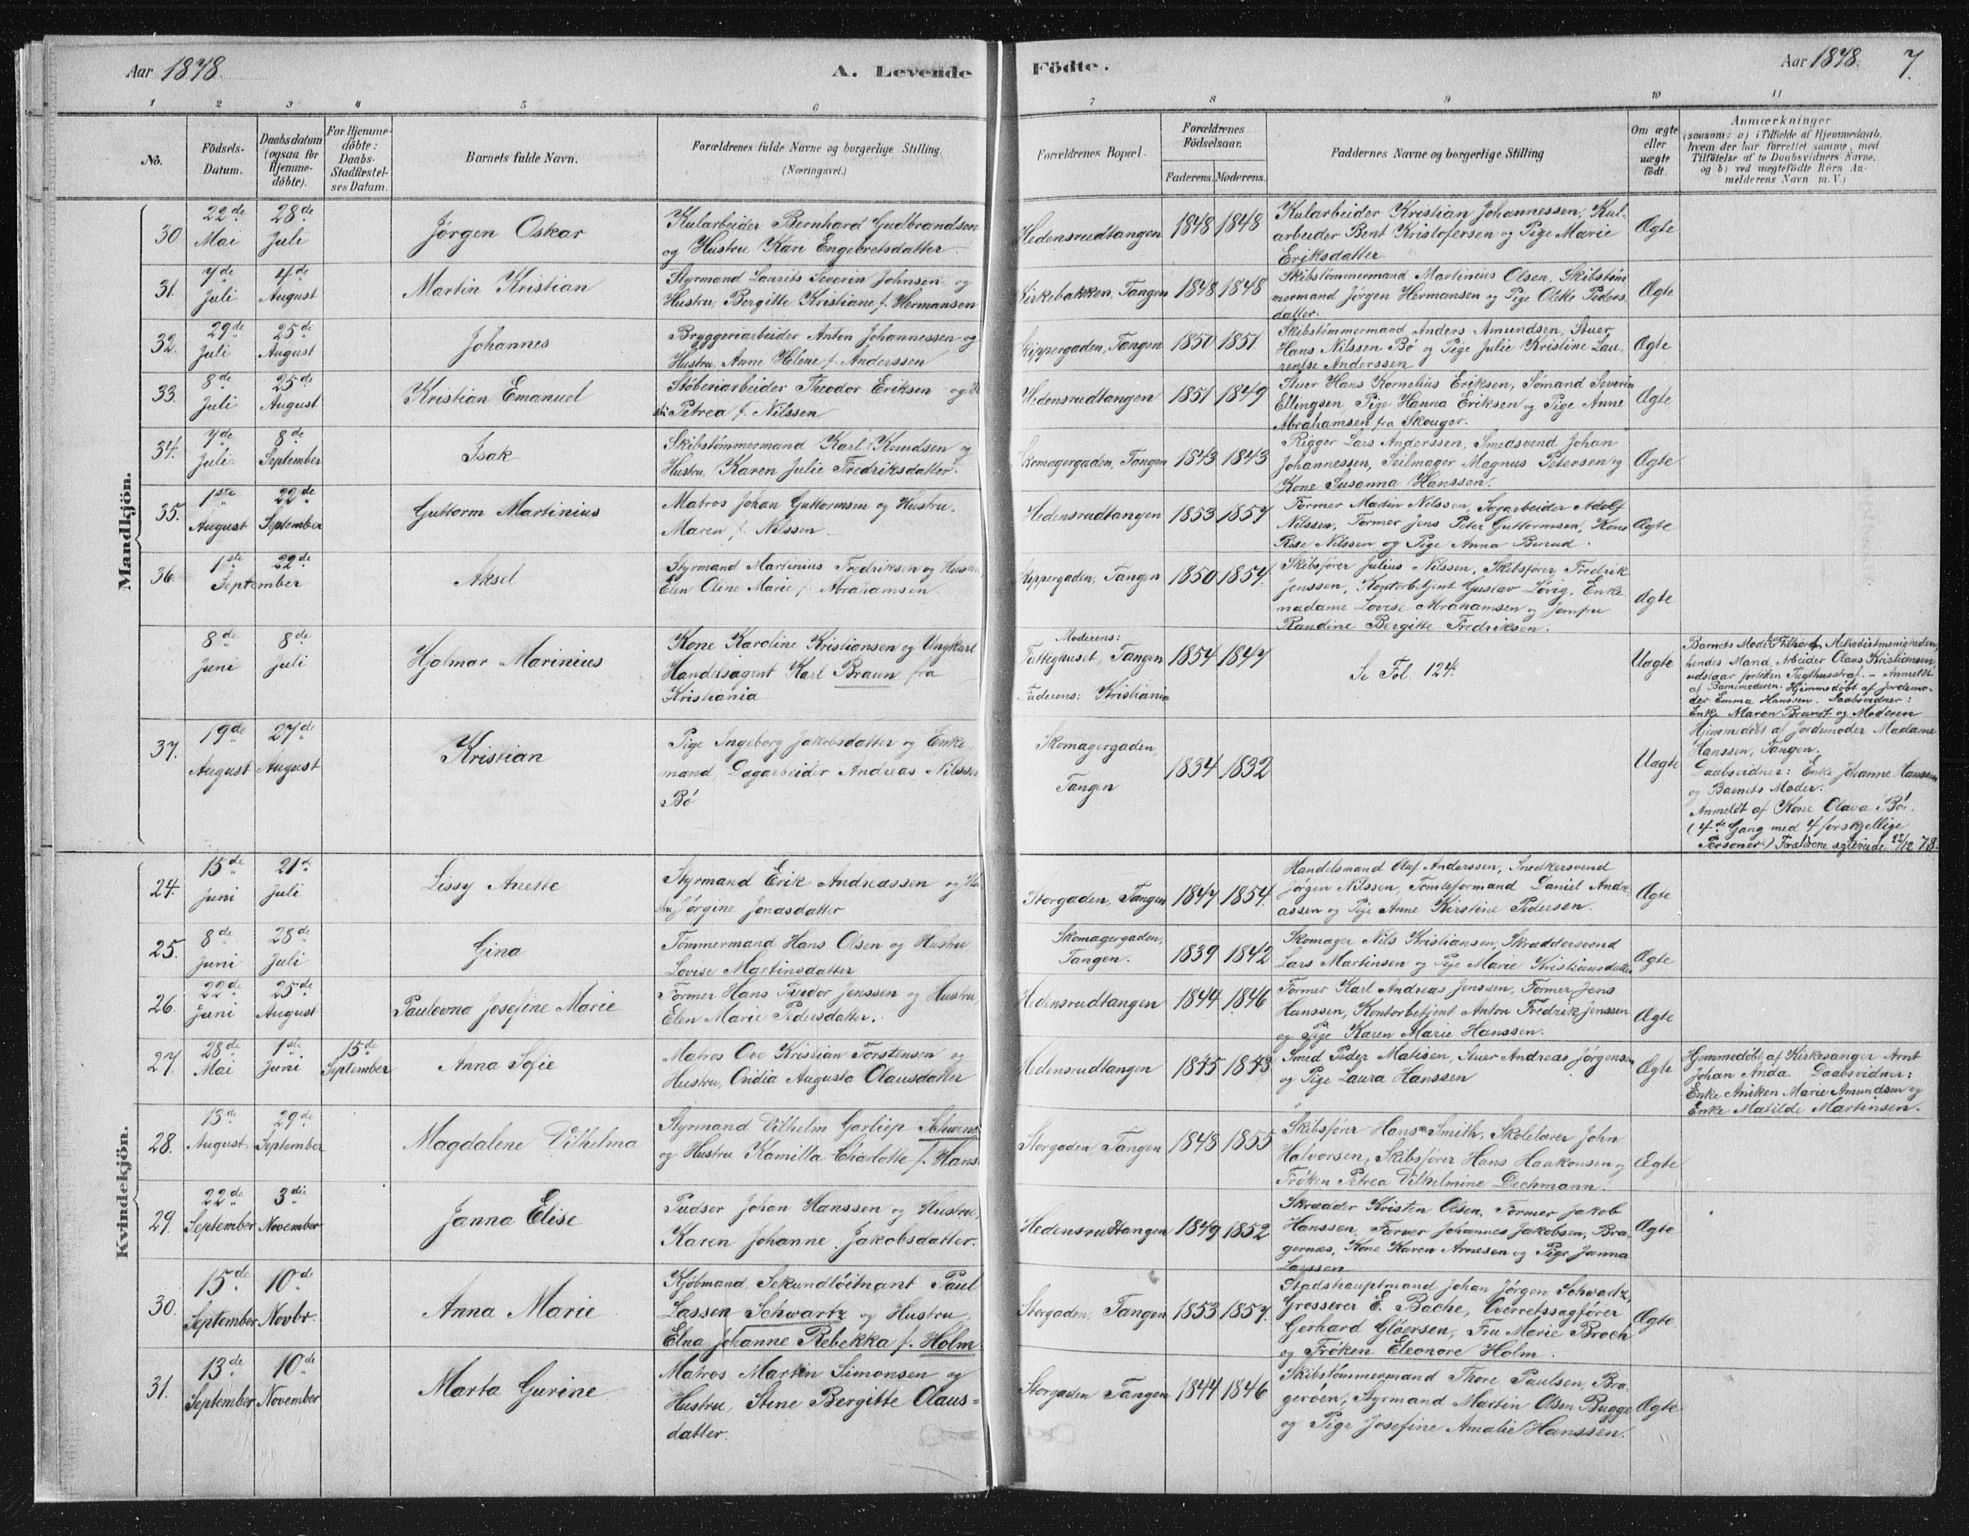 Aar 1878.
A. Levende Födte.
Aar 1878.
7.
1 2 3 4 5 6 7 8 9 10 11
No.
Födsels-
Datum.
Daabsdatum
(ogsaa for
Hjemme-
döbte).
For Hjemme-
döbte:
Daabs-
Stadfæstel-
ses Datum.
Barnets fulde Navn.
Forældrenes fulde Navne og borgerlige Stilling
(Næringsvei.)
Forældrenes Bopæl.
Forældrenes
Födselsaar.
Faderens. Moderens.
Faddernes Navne og borgerlige Stilling
Om ægte
eller
uægte
födt.
Anmærkninger
(saasom: a) i Tilfælde af Hjemmedaab,
hvem der har forrettet samme, med
Tilföielse af to Daabsvidners Navne,
og b) ved uægtefödte Börn An-
melderens Navn m. V.)
Mandkjön.
30
22de
Mai
28de
Juli
Jørgen Oskar
Kularbeider Bernhard Gudbrandsen
og Hustru Kari Engebretsdatter.
Hedensrudtangen
1848 1848
Kularbeider Kristian Johannessen, Kul-
arbeider Bent Kristofersen og Pige Marie
Eriksdatter.
Ægte
31.
7de
Juli
4de
August
Martin Kristian
Styrmand Laurits Severin Johnsen og
Hustru, Bergitte Kristiane f. Hermansen
Kirkebakken, Tangen
1848 1848
Skibstømmermand Martinius Olsen, Skibstøm
mermand Jørgen Hermansen og Pige Olette Peders
datter.
Ægte
32.
29de
Juli
25de
August
Johannes
Bryggeriarbeider Anton Johannessen og
Hustru, Anne Helene f. Anderssen
Skippergaden, Tangen
1850 1851
Skibstømmermand Anders Amundsen, Stuer
Hans Nilssen Bø og Pige Julie Kristine Lau-
rentse Anderssen
Ægte
33.
8de
Juli
25de
August
Kristian Emanuel
Støberiarbeider Theodor Eriksen og
Petrea f. Nilssen
Hedensrudtangen
1851 1849
Stuer Hans Kornelius Eriksen, Sømand Severin
Ellingsen, Pige Hanna Eriksen og Pige Anne
Abrahamsen fra Skouger.
Ægte
34.
7de
Juli
8de
September
Isak
Skibstømmermand Karl Knudsen og
Hustru, Karen Julie Fredriksdatter.
Skomagergaden, Tangen
1843 1843
Rigger Lars Anderssen, Smedsvend Johan
Johannessen, Seilmager Magnus Petersen og
Kone Susanna Hanssen.
Ægte
35.
1ste
August
22de
September
Guttorm Martinius
Matros Johan Guttormsen og Hustru,
Maren f. Nilssen.
Hedensrudtangen
1853 1857
Former Martin Nilssen, Sagarbeider Adolf
Nilssen, Former Jens Peter Guttormsen, Kone
Rise Nilssen og Pige Anna Berud.
Ægte
36.
1ste 22de
September
Aksel
Styrmand Martinius Fredriksen og Hustru
Elen Oline Marie f. Abrahamsen.
Skippergaden, Tangen
1850 1854.
Skibsfører Julius Nilssen, Skibsfører Fredrik
Jenssen, Kontorbetjent Gustav Løvig, Enke
madame Lovise Abrahamsen og Jomfru
Randine Bergitte Fredriksen.
Ægte
8de
Juni
8de
Juli
Hjalmar Marinius
Kone Karoline Kristiansen og Ungkarl
Handelsagent Karl Braun fra
Kristiania
Moderens:
Fattighuset, Tangen
Faderens: Kristiania
1854 1847
Se Fol. 124.
Uægte
Barnets Moder tilhører Methodistmenigheden,
hendes Mand, Arbeider Olaus Kristiansen,
udslaar fortiden Tugthusstraf. – Anmeldt
af Barnemoderen. Hjemmedøbt af Jordemo-
der Emma Hanssen. Daabsvidner:
Enke Maren Brandt og Moderen
37.
19de
August
27de
August
Kristian
Pige Ingeborg Jakobsdatter og Enke-
mand, Dagarbeider Andreas Nilssen
Bø
Skomagergaden,
Tangen
1834 1832
Uægte
Hjemmedøbt af Jordemoder Madame
Hanssen, Tangen.
Daabsvidner: Enke Johanne Hanssen
og Barnets Moder.
Anmeldt af Kone Olava Bø.
(4de Gang med 4 forskjellige
Personer.) Forældrene ægteviede 22/12 78.
Kvindekjön.
24.
15de
Juni
21d
Juli
Lissy Anette
Styrmand Erik Andreassen og Hu
stru Jørgine Jonasdatter
Storgaden, Tangen
1847 1854.
Handelsmand Olaf Anderssen, Snedkersvend
Jørgen Nilssen, Tomteformand Daniel Andre
assen og Pige Anne Kirstine Pedersen.
Ægte
25.
8de
Juni
28de
Juli
Gina
Tømmermand Hans Olsen og Hustru
Lovise Martinsdatter
Skomagergaden,
Tangen.
1839 1842
Skomager Nils Kristiansen, Skræddersvend
Lars Martinsen og Pige Marie Kristiansdatter
Ægte
26.
22de
Juni
25de
August
Paulovna Josefine Marie
Former Hans Teodor Jenssen og Hustru,
Elen Marie Pedersdatter.
Hedensrudtangen
1844 1846
Former Karl Andreas Jenssen, Former Jens
Hanssen, Kontorbetjent Anton Fredrik Jenssen
og Pige Karen Marie Hanssen.
Ægte
27.
28de
Mai
1ste
Juni
15de
September
Anna Sofie
Matros Ove Kristian Torstensen og
Hustru, Ovidia Augusta Olausdatter
Hedensrudtangen
1845 1843
Smed Peder Matisen, Stuer Andreas Jørgensen
og Pige Laura Hanssen
Ægte
Hjemmedøbt af Kirkesanger Arnt
Johan Anda. Daabsvidner:
Enke Aniken Marie Amundsen og
Enke Matilde Martinsen.
28.
13de
August
29de
September
Magdalene Vilhelma
Styrmand Vilhelm Garliep Schwenc
og Hustru Kamilla Charlotte f. Hans
Storgaden Tangen
1848 1855
Skibsfører Hans Smith, Skolelærer John
Halvorsen, Skibsfører Hans Haakonsen og
Frøken Petrea Vilhelmine Dechmann.
Ægte
29.
22de
September
3die
November
Janna Elise
Pudser Johan Hanssen og Hustru,
Karen Johanne Jakobsdatter.
Hedensrudtangen
1849 1852
Skrædder Kristen Olsen, Former Jakob
Hanssen, Farver Johannes Jakobsen, Bra-
gernæs, Kone Karen Arnesen og Pige Janna
Larssen
Ægte
30.
15de
September
10de
Novbr.
Anna Marie
Kjøbmand, Sekundløitnant Paul
Lassen Schwartz og Hustru,
Elna Johanne Rebekka f. Holm
Storgaden, Tangen
1853 1857.
Stadshauptmand Johan Jørgen Schwartz,
Grosserer E. Bache, Overretssagfører
Gerhard Gløersen, Fru Marie Broch
og Frøken Eleonore Holm.
Ægte
31.
13de
September
10de
November
Marta Gurine
Matros Martin Simonsen og
Hustru, Stine Bergitte Olaus-
datter.
Storgaden Tangen
1844 1846
Skibstømmermand Thore Paulsen, Bra-
gerøen, Styrmand Martin Olsen Bugge
og Pige Josefine Amalie Hanssen.
Ægte